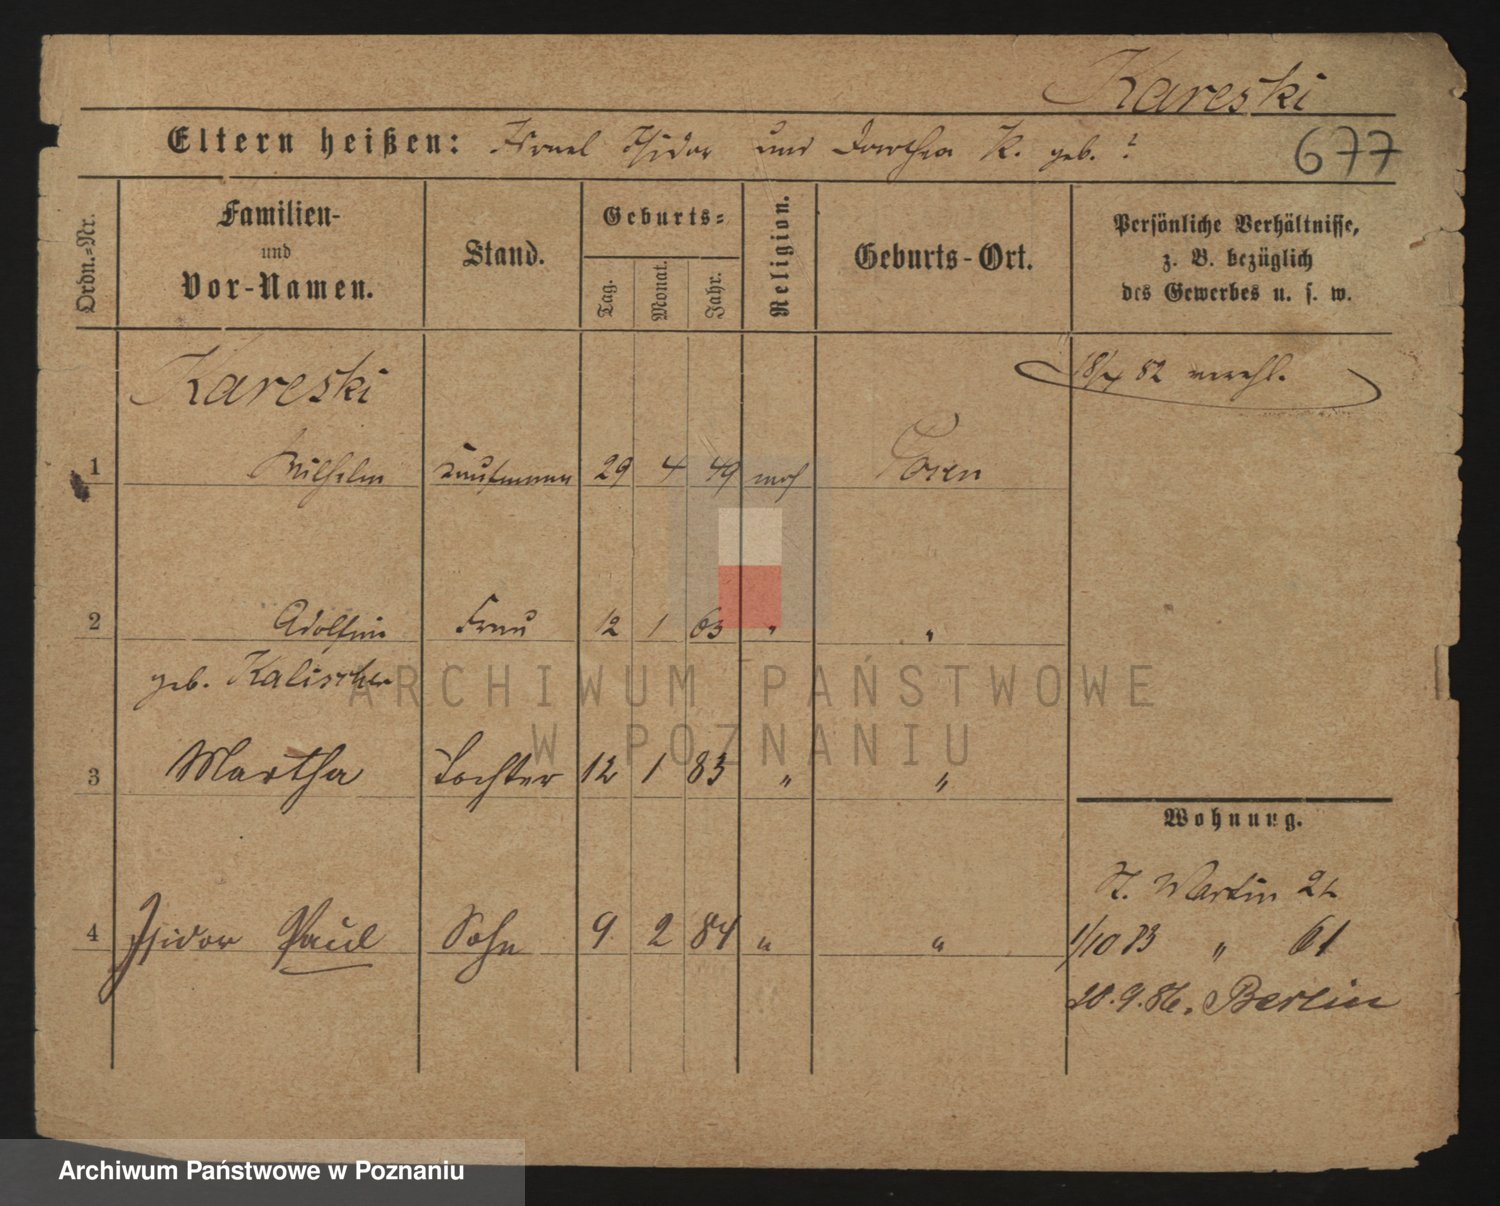 Kareski
Eltern heißen: Israel Isidor und Dorthea K. geb. ?
677
Ordn.=Nr.
Familien-
und
Vor-Namen.
Stand.
Geburts=
Tag.
Monat.
Jahr.
Religion.
Geburts-Ort.
Persönliche Verhältnisse,
z. B. bezüglich
des Gewerbes u. s. w.
Kareski
82 verehl.
1 Wilhelm Kaufmann 29 4 49 mos Posen
2 Adolfine Frau 12 1 63 " "
geb. Kalischer
3 Martha Tochter 12 1 83 " "
Wohnung.
St. Martin
4 Isidor Paul Sohn 9 2 84 " "
1/10 83 " 61
20.9.86. Berlin
ARCHIWUM PAŃSTWOWE
W POZNANIU
Archiwum Państwowe w Poznaniu